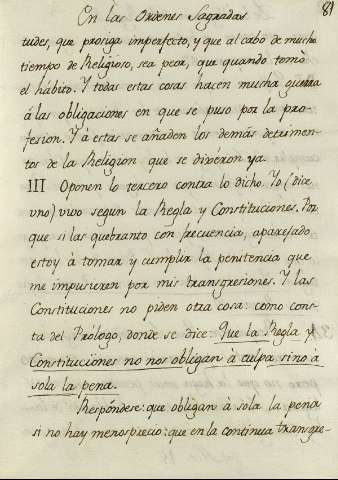 En las Ordenes Sagradas 81
tudes, que prosiga imperfecto, y que al cabo de mucho
tiempo de Religioso, sea peor, que quando tomó
el hábito. Y todas estas cosas hacen mucha guerra
á las obligaciones en que se puso por la pro-
fesion. Y á estas se añaden los demás detrimen-
tos de la Religion que se dixéron ya.
III Oponen lo tercero contra lo dicho. Yo (dice
uno) vivo segun la Regla y Constituciones. Por
que si las quebranto con frecuencia, aparejado
estoy à tomar y cumplir la penitencia que
me impusieren por mis transgresiones. Y las
Constituciones no piden otra cosa: como cons-
ta del Prólogo, donde se dice: Que la Regla y
Constituciones no nos obligan à culpa, sino a
sola la pena.
Respóndese: que obligan à sola la pena
si no hay menosprecio: que en la continua transgre-